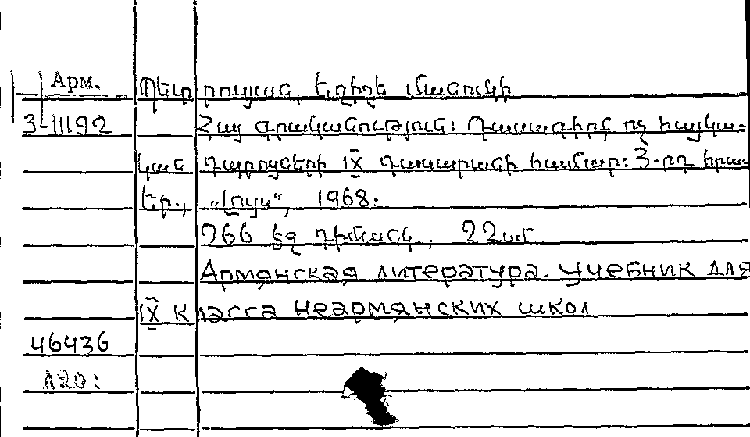 Арм. Պետրոսյան, Եղիշե Մանուկի
3-11192 Հայ գրականություն: Դասագիրք ոչ հայկա-
կան դպրոցների IX դասարանի համար: 3-րդ հրատ.
Եր., „Լույս“, 1968.
266 էջ դիմանկ., 22սմ
Армянская литература. Учебник для
IX класса неармянских школ
46436